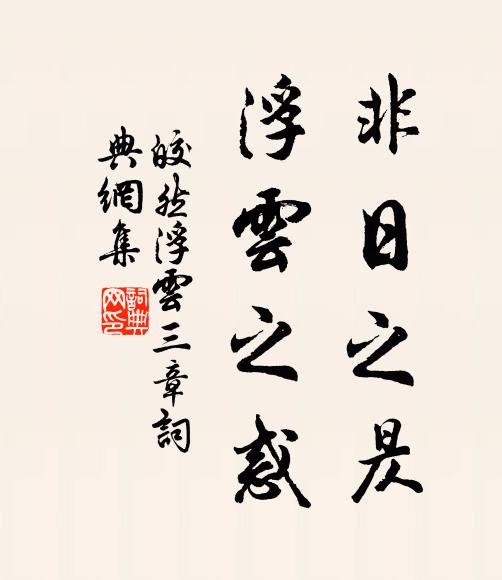 非日之昃
浮雲之惑
皎然浮雲三章詞
典網集
詞典网印